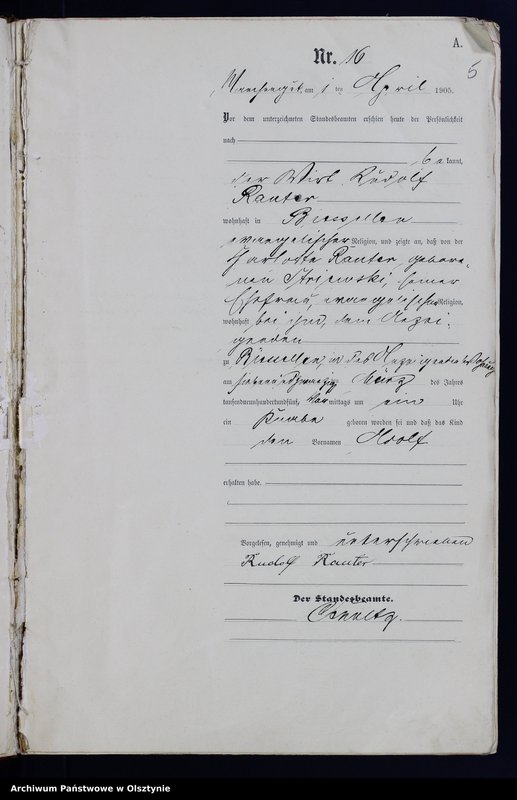 A.
5
Nr. 16
am 1 ten April 1905.
Vor dem unterzeichneten Standesbeamten erschien heute der Persönlichkeit
nach
be kannt,
der Wirt Rudolf
Ranter
wohnhaft in Biessellen
evangelischer Religion, und zeigte an, daß von der
Rauter, gebore-
nen seiner
Ehefrau, evangelischer Religion,
wohnhaft bei ihm, dem Anzei-
genden
zu Biessellen, in des Anzeigenden Wohnung
am siebenundzwanzigsten März des Jahres
tausendneunhundertundfünf, Vor mittags um ein Uhr
ein Knabe geboren worden sei und daß das Kind
den Vornamen Adolf
erhalten habe.
Vorgelesen, genehmigt und unterschrieben
Rudolf Rauter
Der Standesbeamte.
Archiwum Państwowe w Olsztynie